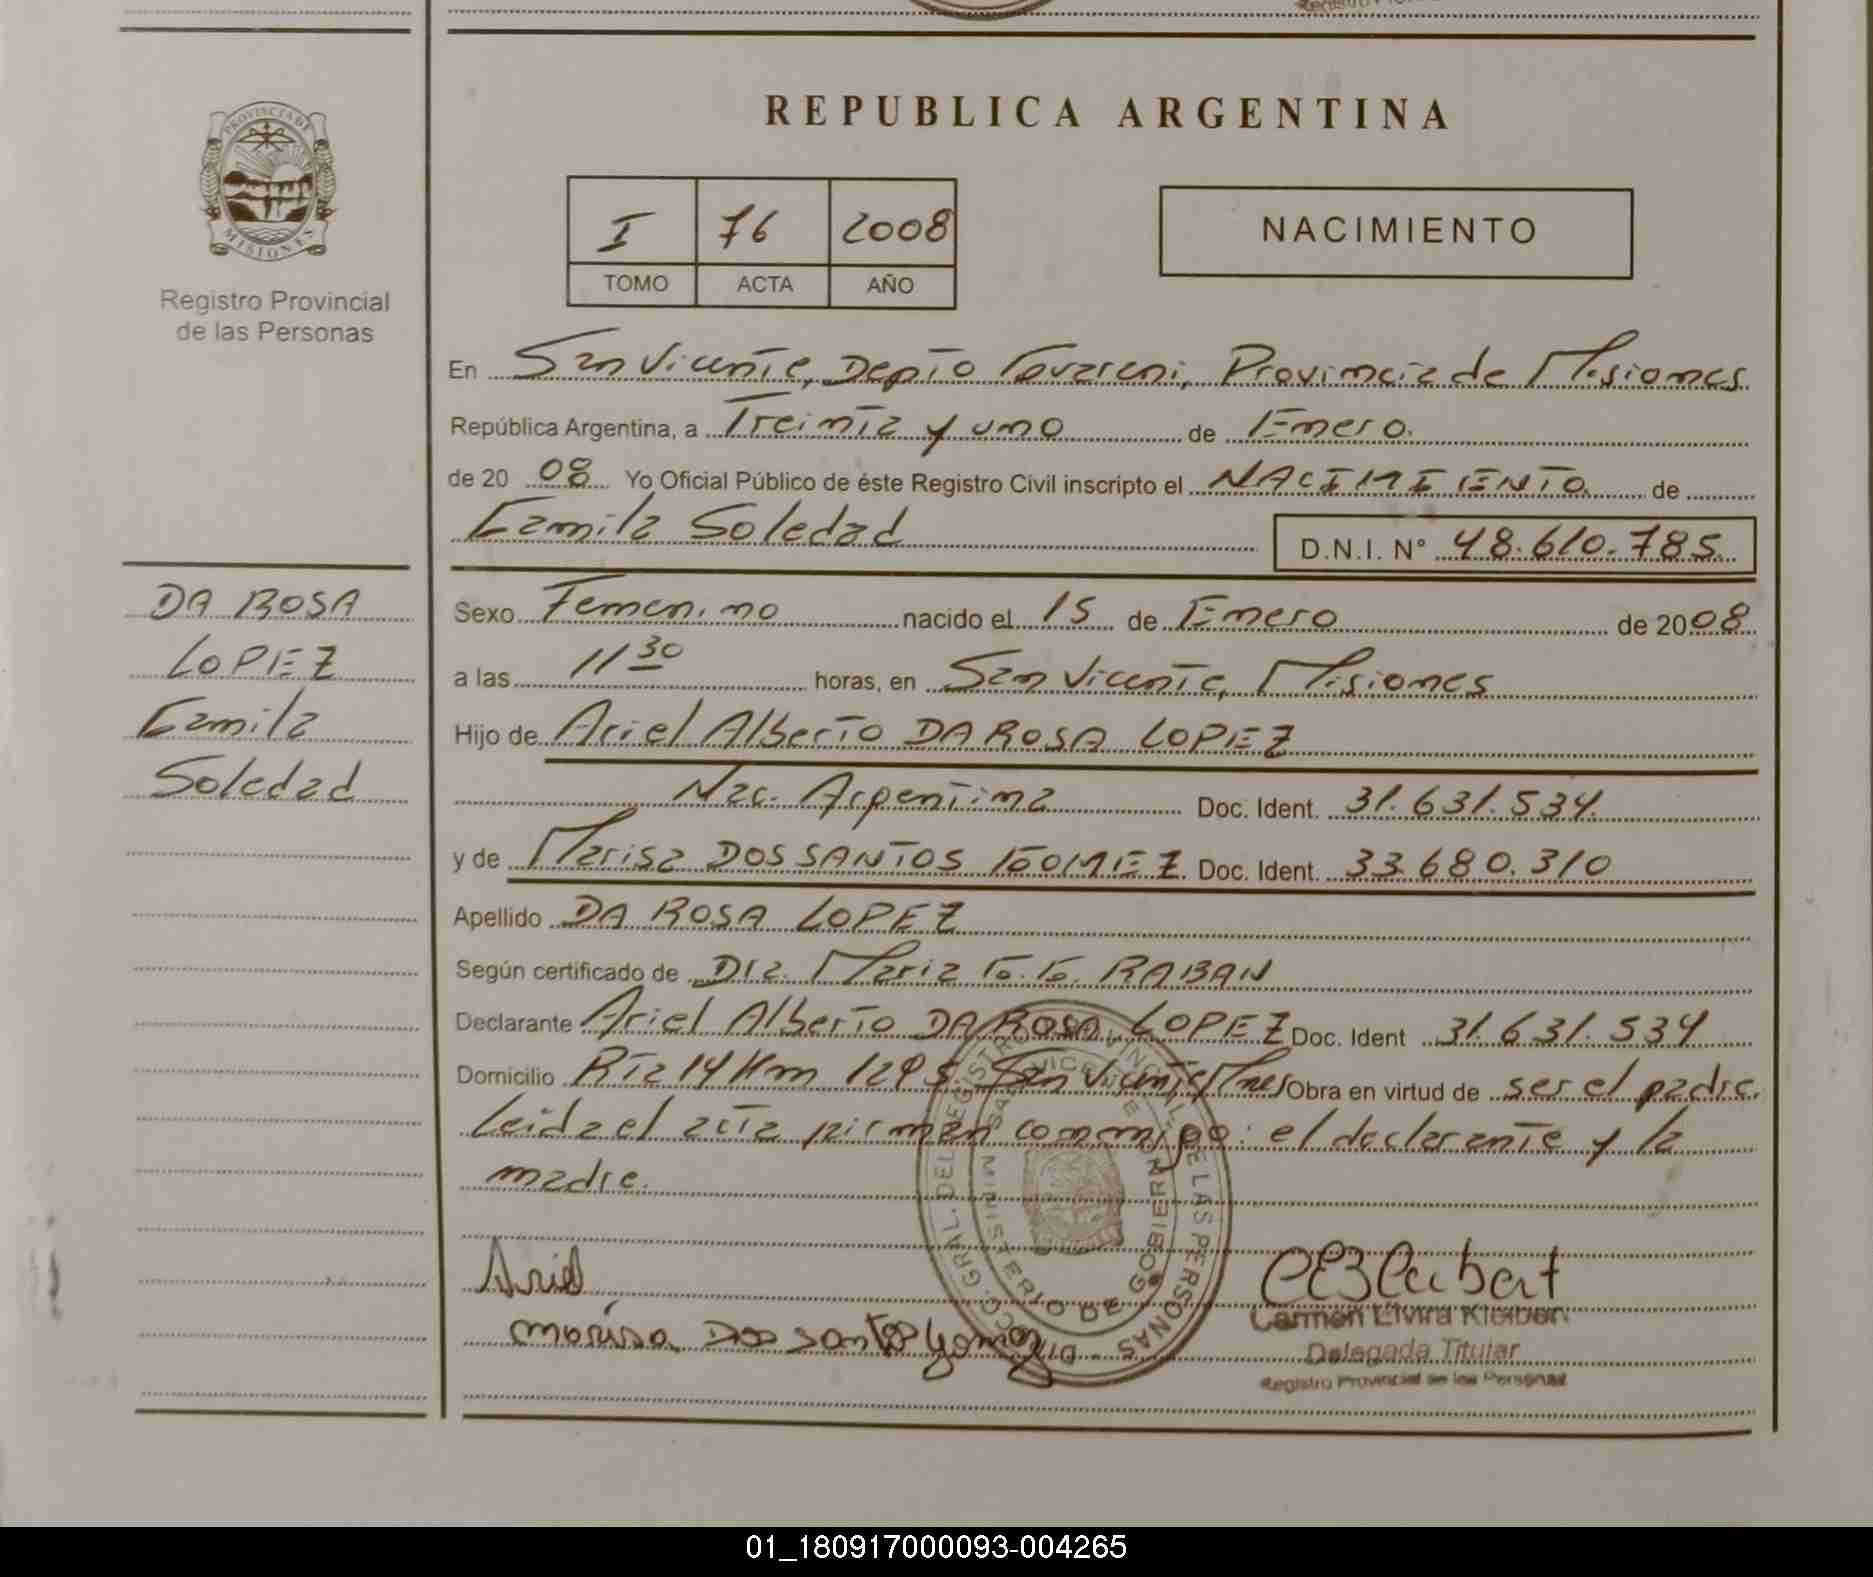 PROVINCIA DE
MISIONES
Registro Provincial
de las Personas
DA ROSA
LOPEZ
Camila
Soledad
REPUBLICA ARGENTINA
I 76 2008
TOMO ACTA AÑO
NACIMIENTO
En San Vicente, Depto Guaraní, Provincia de Misiones
República Argentina, a Treinta y uno de Enero.
de 20 08 Yo Oficial Público de éste Registro Civil inscripto el NACIMIENTO de
Camila Soledad D.N.I. N° 48.610.785.
Sexo Femenino nacido el 15 de Enero de 2008
a las 11 30 horas, en San Vicente, Misiones
Hijo de Ariel Alberto DA ROSA LOPEZ
Nac. Argentina Doc. Ident. 31.631.534.
y de Marisa DOS SANTOS GOMEZ. Doc. Ident. 33.680.310
Apellido DA ROSA LOPEZ
Según certificado de Dra. Maria G. G. RABAN
Declarante Ariel Alberto DA ROSA LOPEZ Doc. Ident 31.631.534
Domicilio Rta 14 Km San Vicente Mnes Obra en virtud de ser el padre.
Leida el acta firman conmigo: el declarante y la
madre.
Ariel
Marisa Dos Santos Gomez
Carmen Elvira
Delegada Titular
Registro Provincial de las Personas
01_180917000093-004265